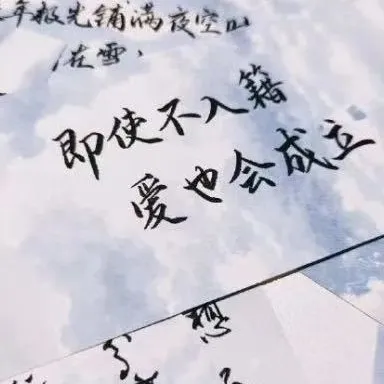 年极光铺满夜空
在雪，
即使不入籍
爱也会成立
想